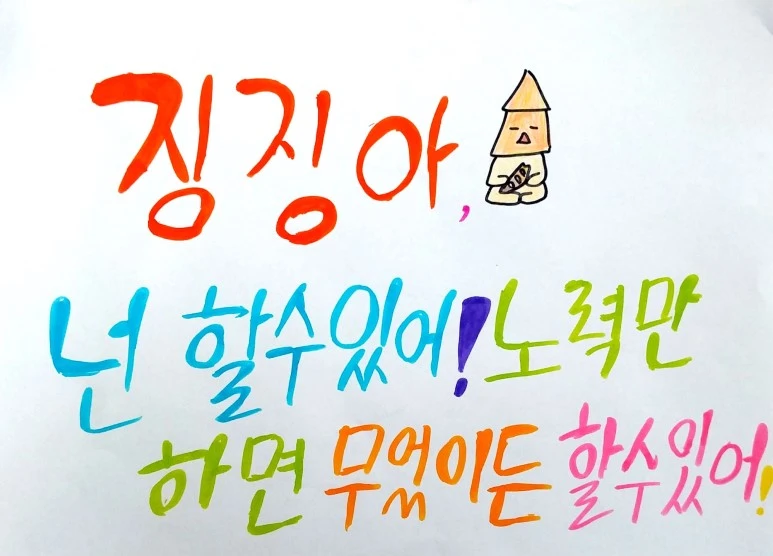 징징아,
넌 할수있어! 노력만
하면 무엇이든 할수있어!